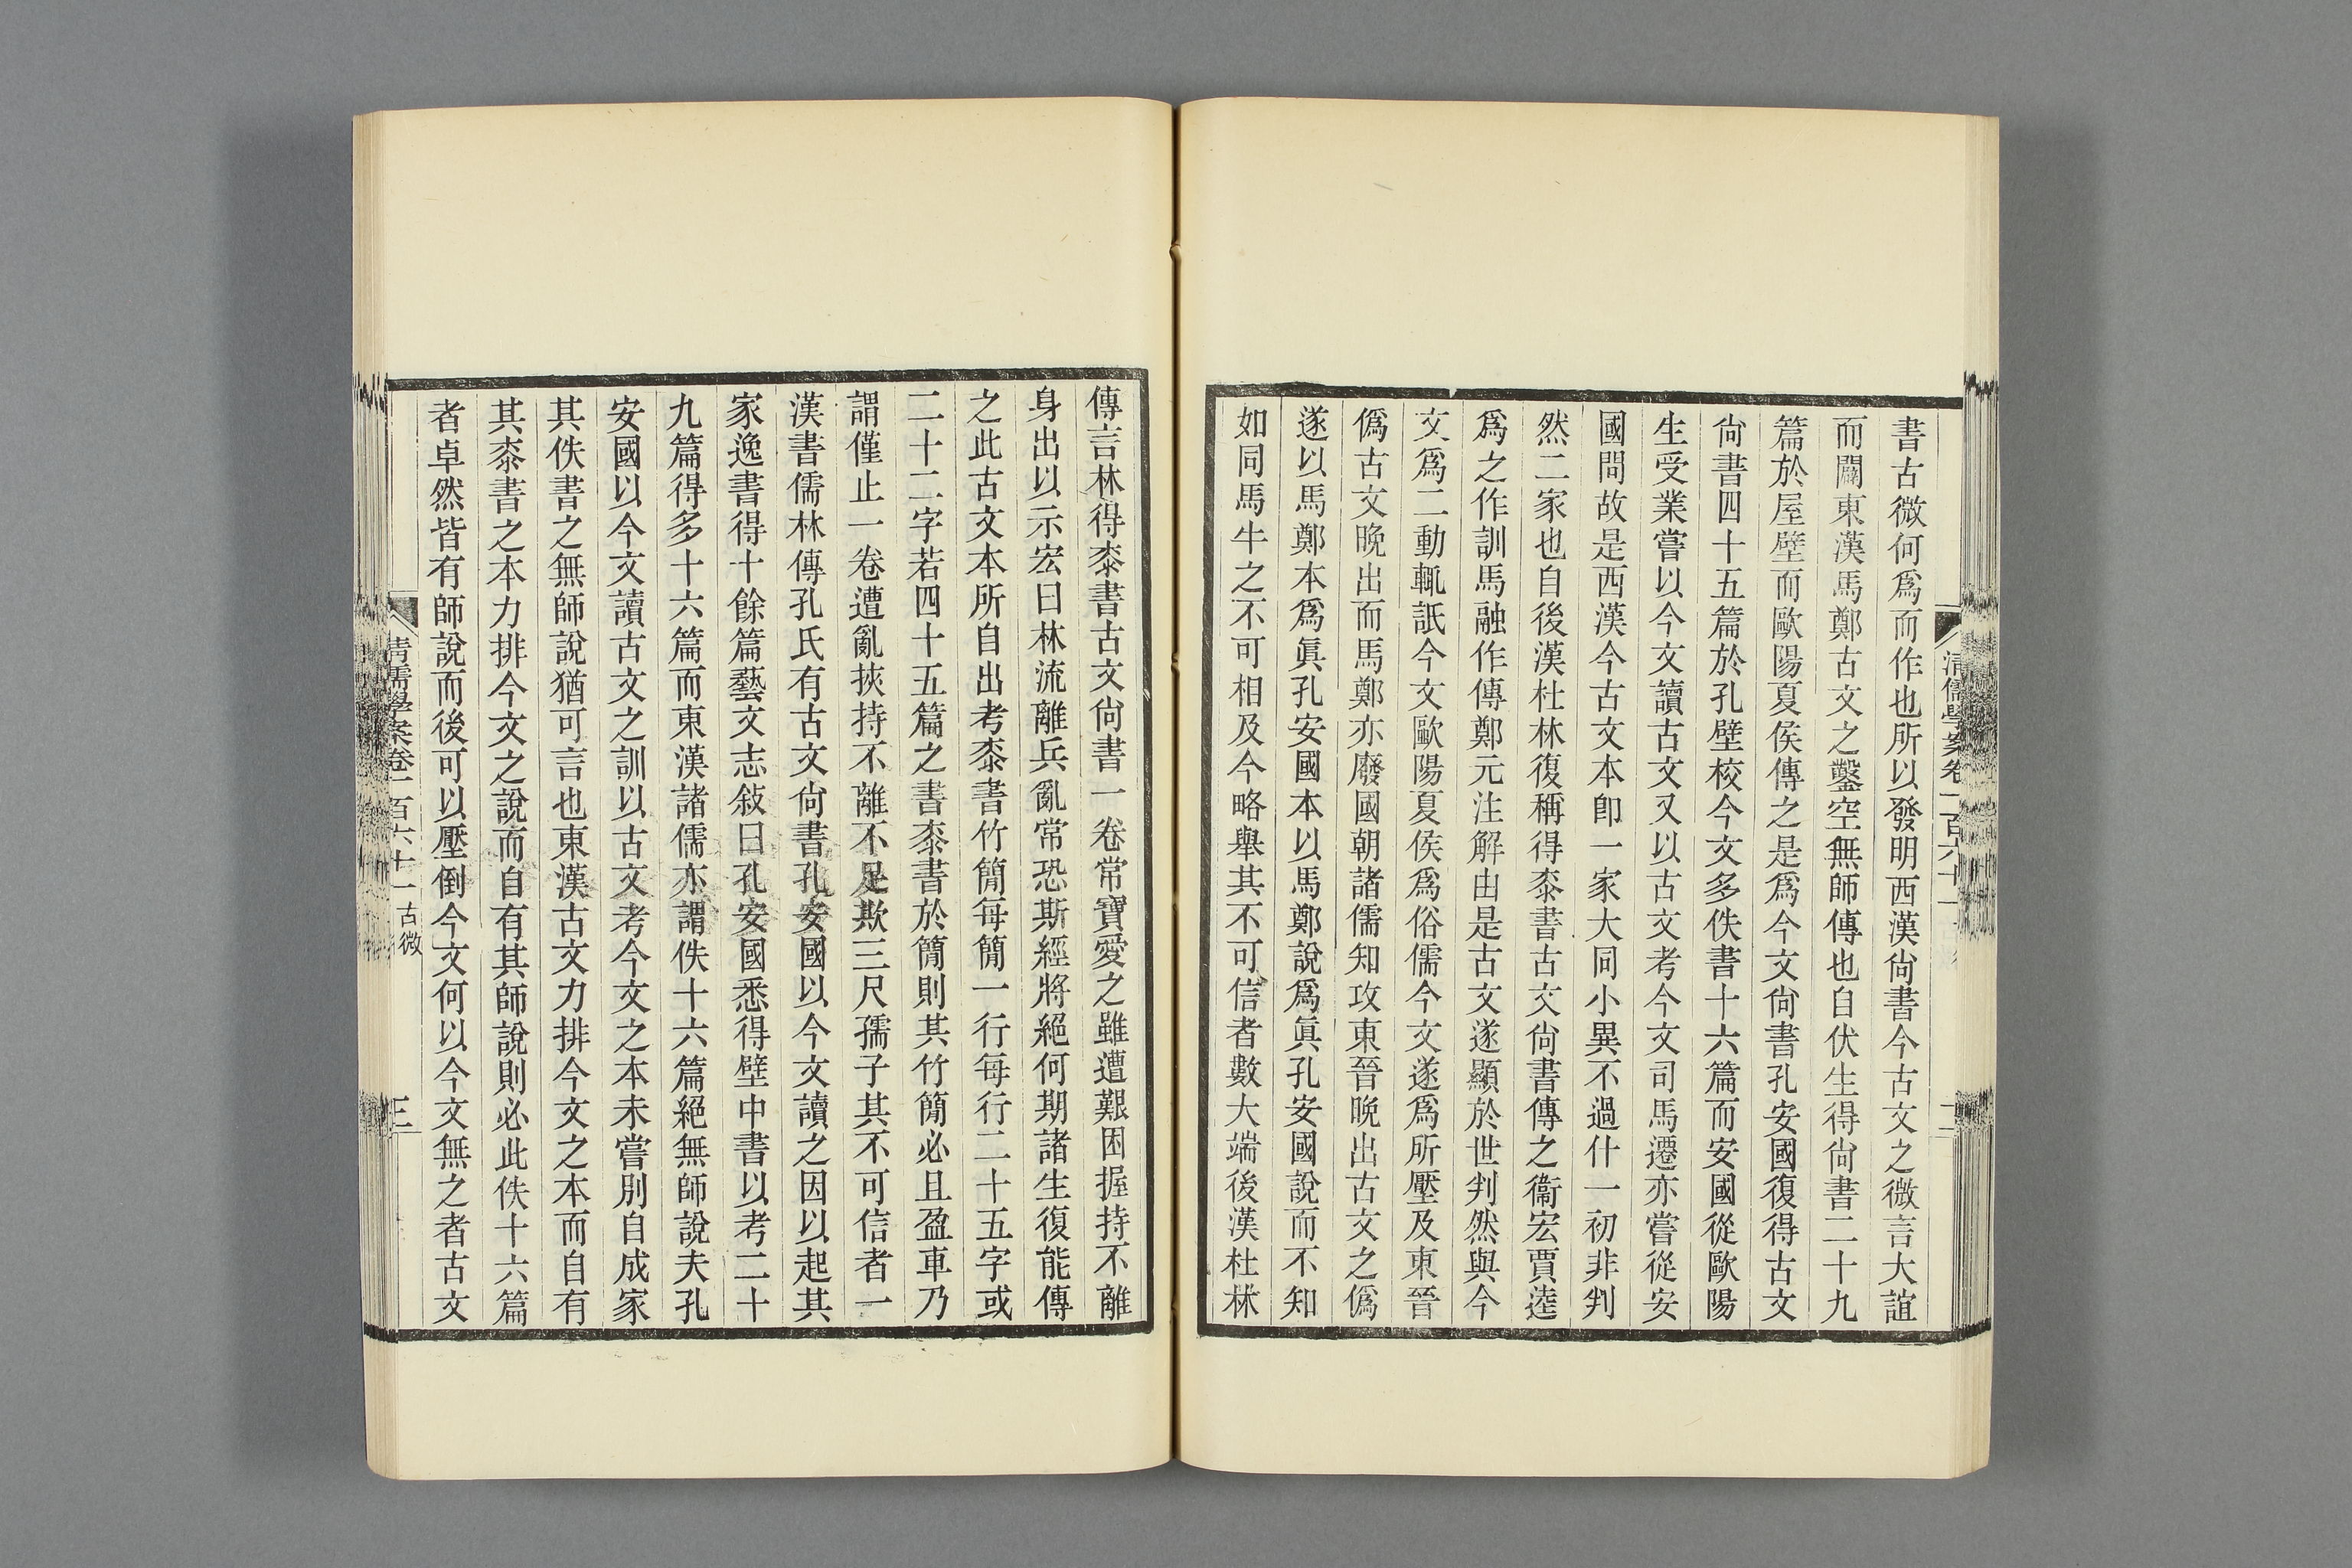 書古微何爲而作也所以發明西漢尙書今古文之微言大誼
而闢東漢馬鄭古文之鑿空無師傳也自伏生得尙書二十九
篇於屋壁而歐陽夏侯傳之是爲今文尙書孔安國復得古文
尙書四十五篇於孔壁校今文多佚書十六篇而安國從歐陽
生受業嘗以今文讀古文又以古文考今文司馬遷亦嘗從安
國問故是西漢今古文本卽一家大同小異不過什一初非判
然二家也自後漢杜林復稱得桼書古文尙書傳之衞宏賈逵
爲之作訓馬融作傳鄭元注解由是古文遂顯於世判然與今
文爲二動輒詆今文歐陽夏侯爲俗儒今文遂爲所壓及東晉
僞古文晚出而馬鄭亦廢國朝諸儒知攻東晉晚出古文之僞
遂以馬鄭本爲眞孔安國本以馬鄭說爲眞孔安國說而不知
如同馬牛之不可相及今略舉其不可信者數大端後漢杜林
傳言林得桼書古文尙書一卷常寶愛之雖遭艱困握持不離
身出以示宏曰林流離兵亂常恐斯經將絕何期諸生復能傳
之此古文本所自出考桼書竹簡每簡一行每行二十五字或
二十二字若四十五篇之書桼書於簡則其竹簡必且盈車乃
謂僅止一卷遭亂挾持不離不足欺三尺孺子其不可信者一
漢書儒林傳孔氏有古文尙書孔安國以今文讀之因以起其
家逸書得十餘篇藝文志敍曰孔安國悉得壁中書以考二十
九篇得多十六篇而東漢諸儒亦謂佚十六篇絕無師說夫孔
安國以今文讀古文之訓以古文考今文之本未嘗別自成家
其佚書之無師說猶可言也東漢古文力排今文之本而自有
其桼書之本力排今文之說而自有其師說則必此佚十六篇
者卓然皆有師說而後可以壓倒今文何以今文無之者古文
清儒學案卷一百六十一 古微
三
清儒學案卷一百六十一